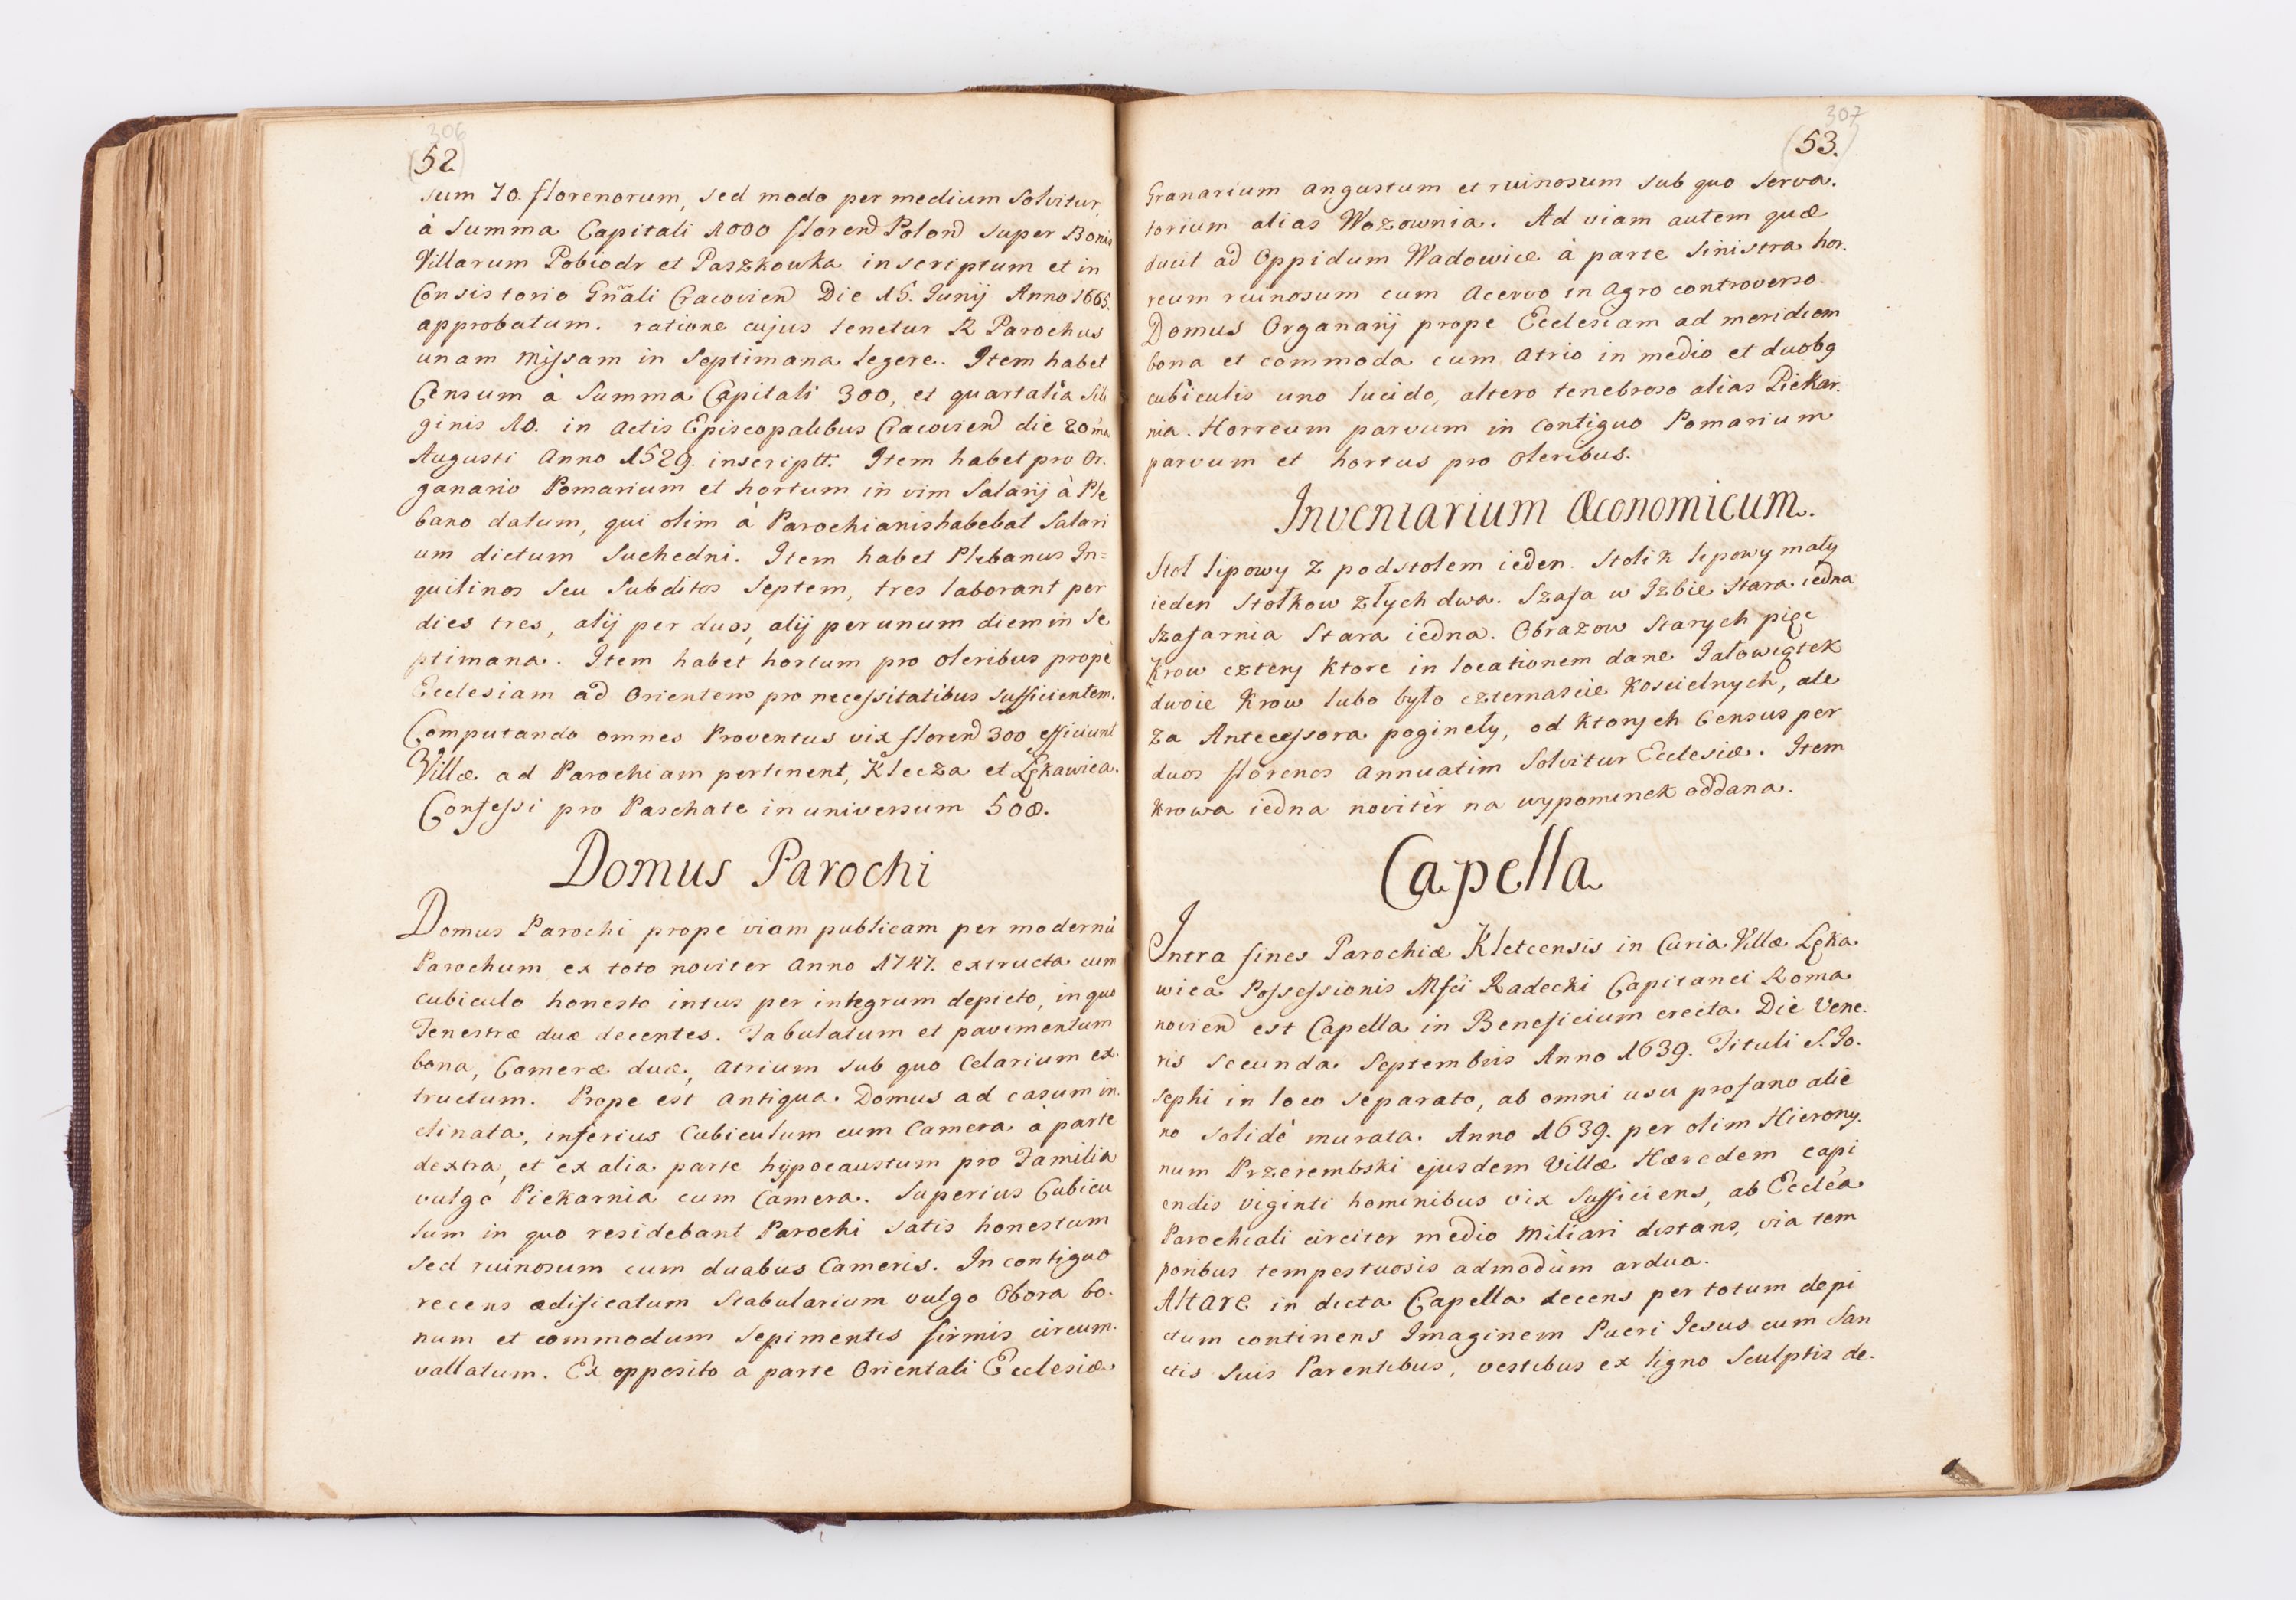 306
(52)
sum 70. florenorum, sed modo per medium solvitur,
à Summa Capitali 1000 floren Polon super Bonis
Villarum Pobiodr et Paszkowka inscriptum et in
Consistorio Gnali Cracovien Die 15. Junij Anno 1665.
approbatum. ratione cujus tenetur R Parochus
unam Missam in Septimana legere. Item habet
Censum à Summa Capitali 300, et quartalia Sili
ginis 10. in Actis Episcopalibus Cracovien die 20ma
Augusti Anno 1529. inscriptt. Item habet pro Or.
ganario Pomarium et hortum in vim Salarij à Ple
bano datum, qui olim à Parochianis habebat Salari
um dictum Suchedni. Item habet Plebanus In=
quilinos seu Subditos Septem, tres laborant per
dies tres, alij per duos, alij per unum diem in Se
ptimana. Item habet hortum pro Oleribus propè
Ecclesiam ad Orientem pro necessitatibus sufficientem.
Computando omnes Proventus vix floren 300 efficiunt
Villæ ad Parochiam pertinent, Klecza et Lękawica.
Confessi pro Paschate in universum 500.
Domus Parochi
Domus Parochi prope viam publicam per modernu
Parochum ex toto noviter Anno 1747. extructa cum
cubiculo honesto intus per integrum depicto, in quo
Fenestræ duæ decentes. Tabulatum et pavimentum
bona, Cameræ duæ, Atrium sub quo Celarium ex.
tructum. Prope est Antiqua Domus ad casum in.
clinata, inferius Cubiculum cum Camera à parte
dextra, et ex alia parte hypocaustum pro Familia
vulgo Piekarnia cum Camera. Superius Cubicu
lum in quo residebant Parochi satis honestum
sed ruinosum cum duabus Cameris. In contiguo
recens ædificatum Stabularium vulgo Obora bo.
num et commodum sepimentis firmis circum.
vallatum. Ex opposito a parte Orientali Ecclesiæ
307
(53.)
Granarium angustum et ruinosum sub quo Serva.
torium alias Wozownia. Ad viam autem quæ
ducit ad Oppidum Wadowice à parte sinistra hor.
reum ruinosum cum Acervo in Agro controverso.
Domus Organarij prope Ecclesiam ad meridiem
bona et commoda cum Atrio in medio et duobg
cubiculis uno lucido, altero tenebroso alias Piekar.
nia. Horreum parvum in contiguo Pomarium
parvum et hortus pro Oleribus.
Inventarium Œconomicum.
Stoł lipowy z podstolem ieden. Stolik lipowy mały
ieden Stołkow złych dwa. Szafa w Izbie Stara iedna
Szafarnia Stara iedna. Obrazow Starych pięc
Krow cztery Ktore in locationem dane Jalowiątek
dwoie Krow lubo było czternascie Koscielnych, ale
za Antecessora poginęły, od Ktorych Census per
duos florenos Annuatim Solvitur Ecclesiæ. Item
Krowa iedna noviter na wypominek oddana.
Capella
Intra fines Parochiæ Kletcensis in Curia Villæ Lęka
wica Possessionis Mfci Radecki Capitanei Roma
novien est Capella in Beneficium erecta Die Vene.
ris secunda Septembris Anno 1639. Tituli S. Jo.
sephi in loco separato, ab omni usu profano alie
no solidè murata. Anno 1639. per olim Hierony.
num Przerembski ejusdem Villæ Hæredem capi
endis viginti hominibus vix sufficiens, ab Eccl'ea
Parochiali circiter medio Miliari distans, via tem
poribus tempestuosis admodùm ardua.
Altare in dicta Capella decens per totum depi
ctum continens Imaginem Pueri Jesus cum San
ctis suis Parentibus, vestibus ex ligno Sculptis de.